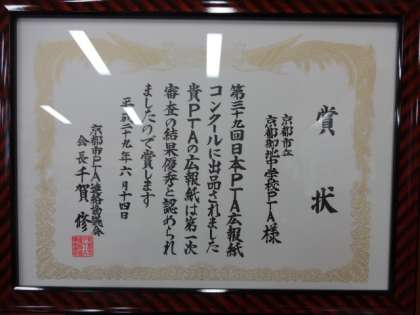 賞状
京都市立
京都御池中学校PTA様
第三十九回日本PTA広報紙
コンクールに出品されました
貴PTAの広報紙は第一次
審査の結果優秀と認められ
ましたので賞します
平成二十九年六月十四日
京都市PTA連絡協議会
会長千賀修